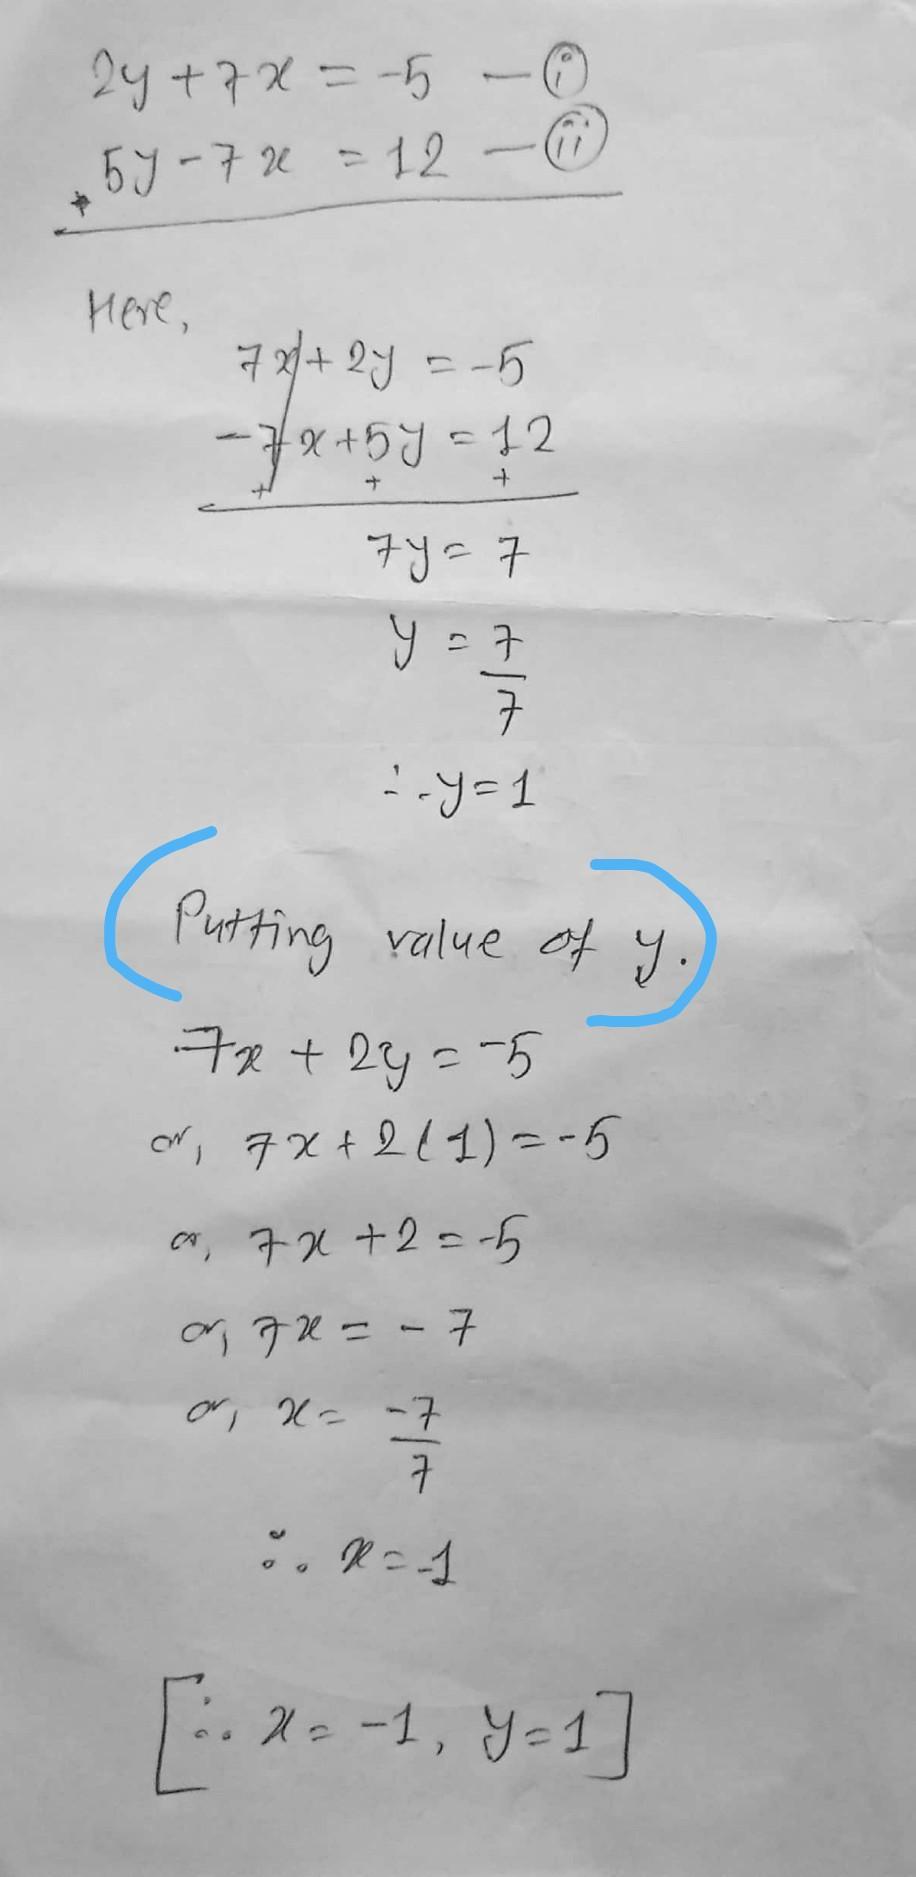 2y + 7x = -5 — (i)
5y - 7x = 12 — (ii)
+
Here,
7x + 2y = -5
-7x + 5y = 12
+ + +
7y = 7
y = 7
7
∴ y = 1
Putting value of y.
7x + 2y = -5
or, 7x + 2(1) = -5
or, 7x + 2 = -5
or, 7x = -7
or, x = -7
7
∴ x = -1
[∴ x = -1, y = 1]